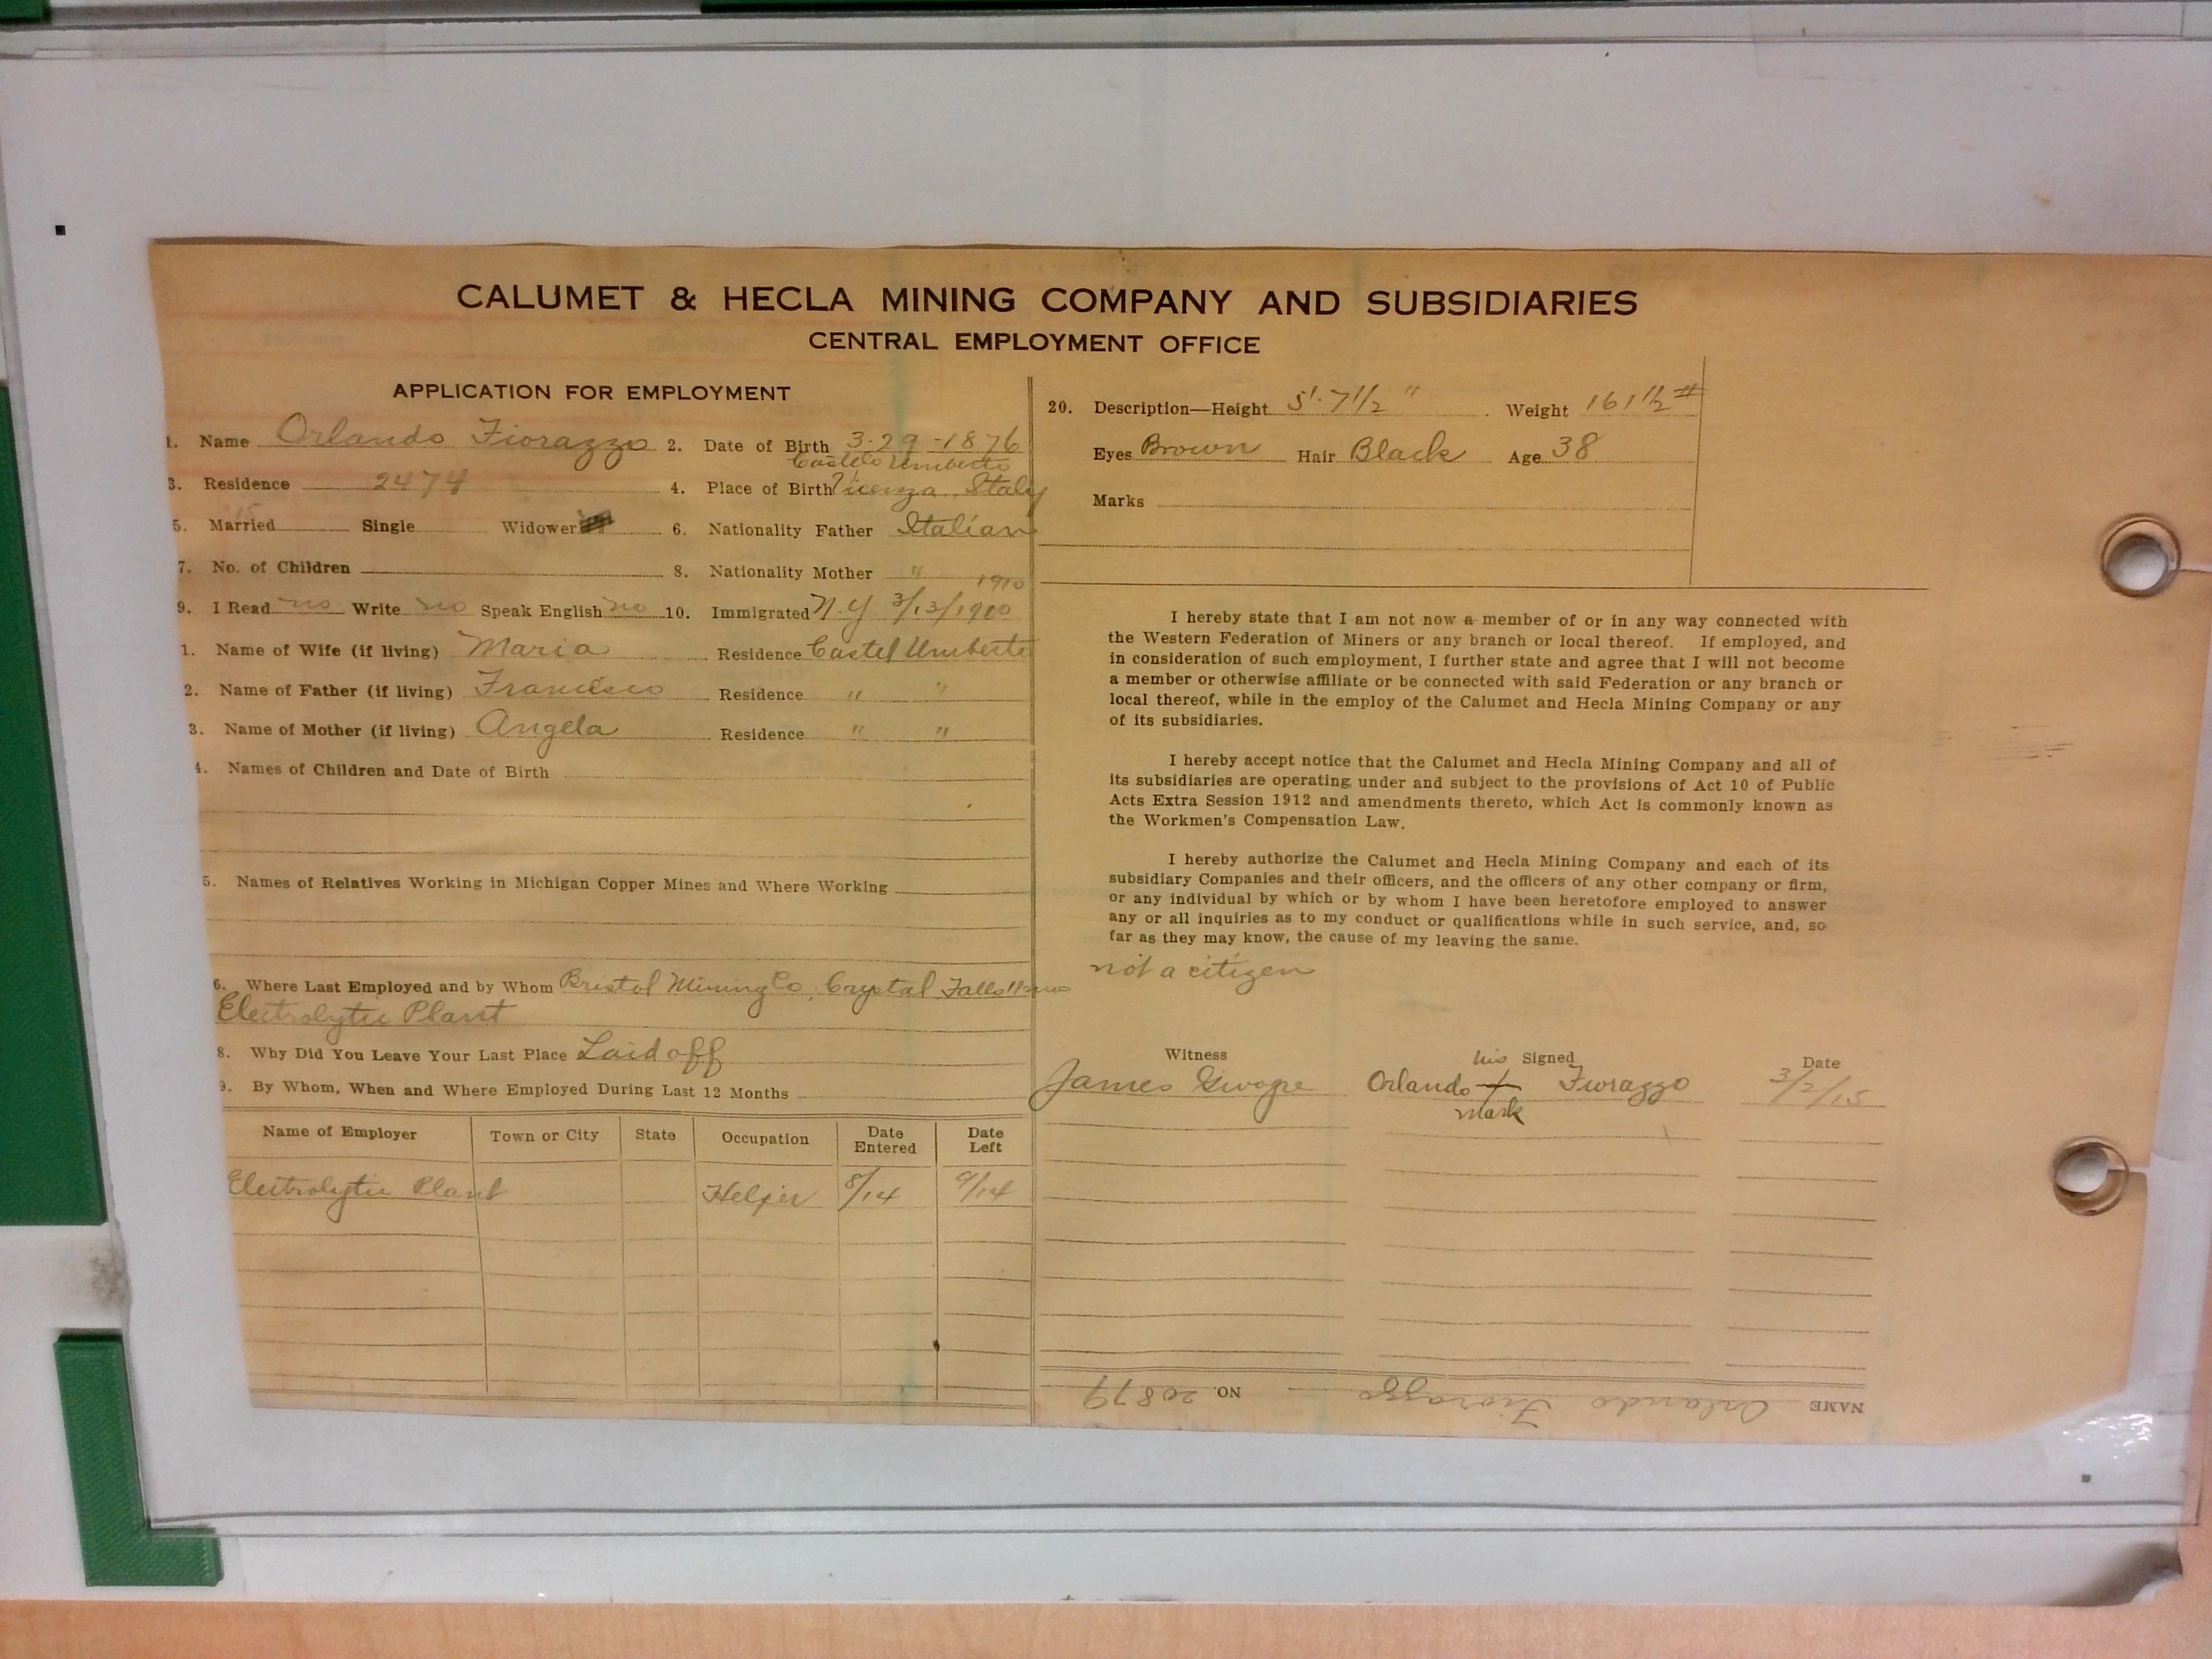 CALUMET & HECLA MINING COMPANY AND SUBSIDIARIES
CENTRAL EMPLOYMENT OFFICE
APPLICATION FOR EMPLOYMENT
1. Name Orlando Fiorazzo 2. Date of Birth 3-29-1876
Castelo Umberto
3. Residence 2474 4. Place of Birth Vicenza, Italy
5. Married 15 Single Widower 6. Nationality Father Italian
7. No. of Children 8. Nationality Mother "
1910
9. I Read no Write no Speak English no 10. Immigrated N.Y. 3/13/1900
1. Name of Wife (if living) Maria Residence Castel Umberto
2. Name of Father (if living) Francisco Residence " "
3. Name of Mother (if living) Angela Residence " "
4. Names of Children and Date of Birth
5. Names of Relatives Working in Michigan Copper Mines and Where Working
6. Where Last Employed and by Whom Bristol Mining Co, Crystal Falls
Electrolytic Plant
8. Why Did You Leave Your Last Place Laid off
9. By Whom, When and Where Employed During Last 12 Months
Name of Employer Town or City State Occupation Date Entered Date Left
Electrolytic Plant Helper 8/14 9/14
20. Description—Height 5'-7 1/2" Weight 161 1/2 #
Eyes Brown Hair Black Age 38
Marks
I hereby state that I am not now a member of or in any way connected with
the Western Federation of Miners or any branch or local thereof. If employed, and
in consideration of such employment, I further state and agree that I will not become
a member or otherwise affiliate or be connected with said Federation or any branch or
local thereof, while in the employ of the Calumet and Hecla Mining Company or any
of its subsidiaries.
I hereby accept notice that the Calumet and Hecla Mining Company and all of
its subsidiaries are operating under and subject to the provisions of Act 10 of Public
Acts Extra Session 1912 and amendments thereto, which Act is commonly known as
the Workmen's Compensation Law.
I hereby authorize the Calumet and Hecla Mining Company and each of its
subsidiary Companies and their officers, and the officers of any other company or firm,
or any individual by which or by whom I have been heretofore employed to answer
any or all inquiries as to my conduct or qualifications while in such service, and, so
far as they may know, the cause of my leaving the same.
not a citizen
Witness his Signed Date
James Orlando + Fiorazzo 3/2/15
mark
NAME Orlando Fiorazzo NO. 20879